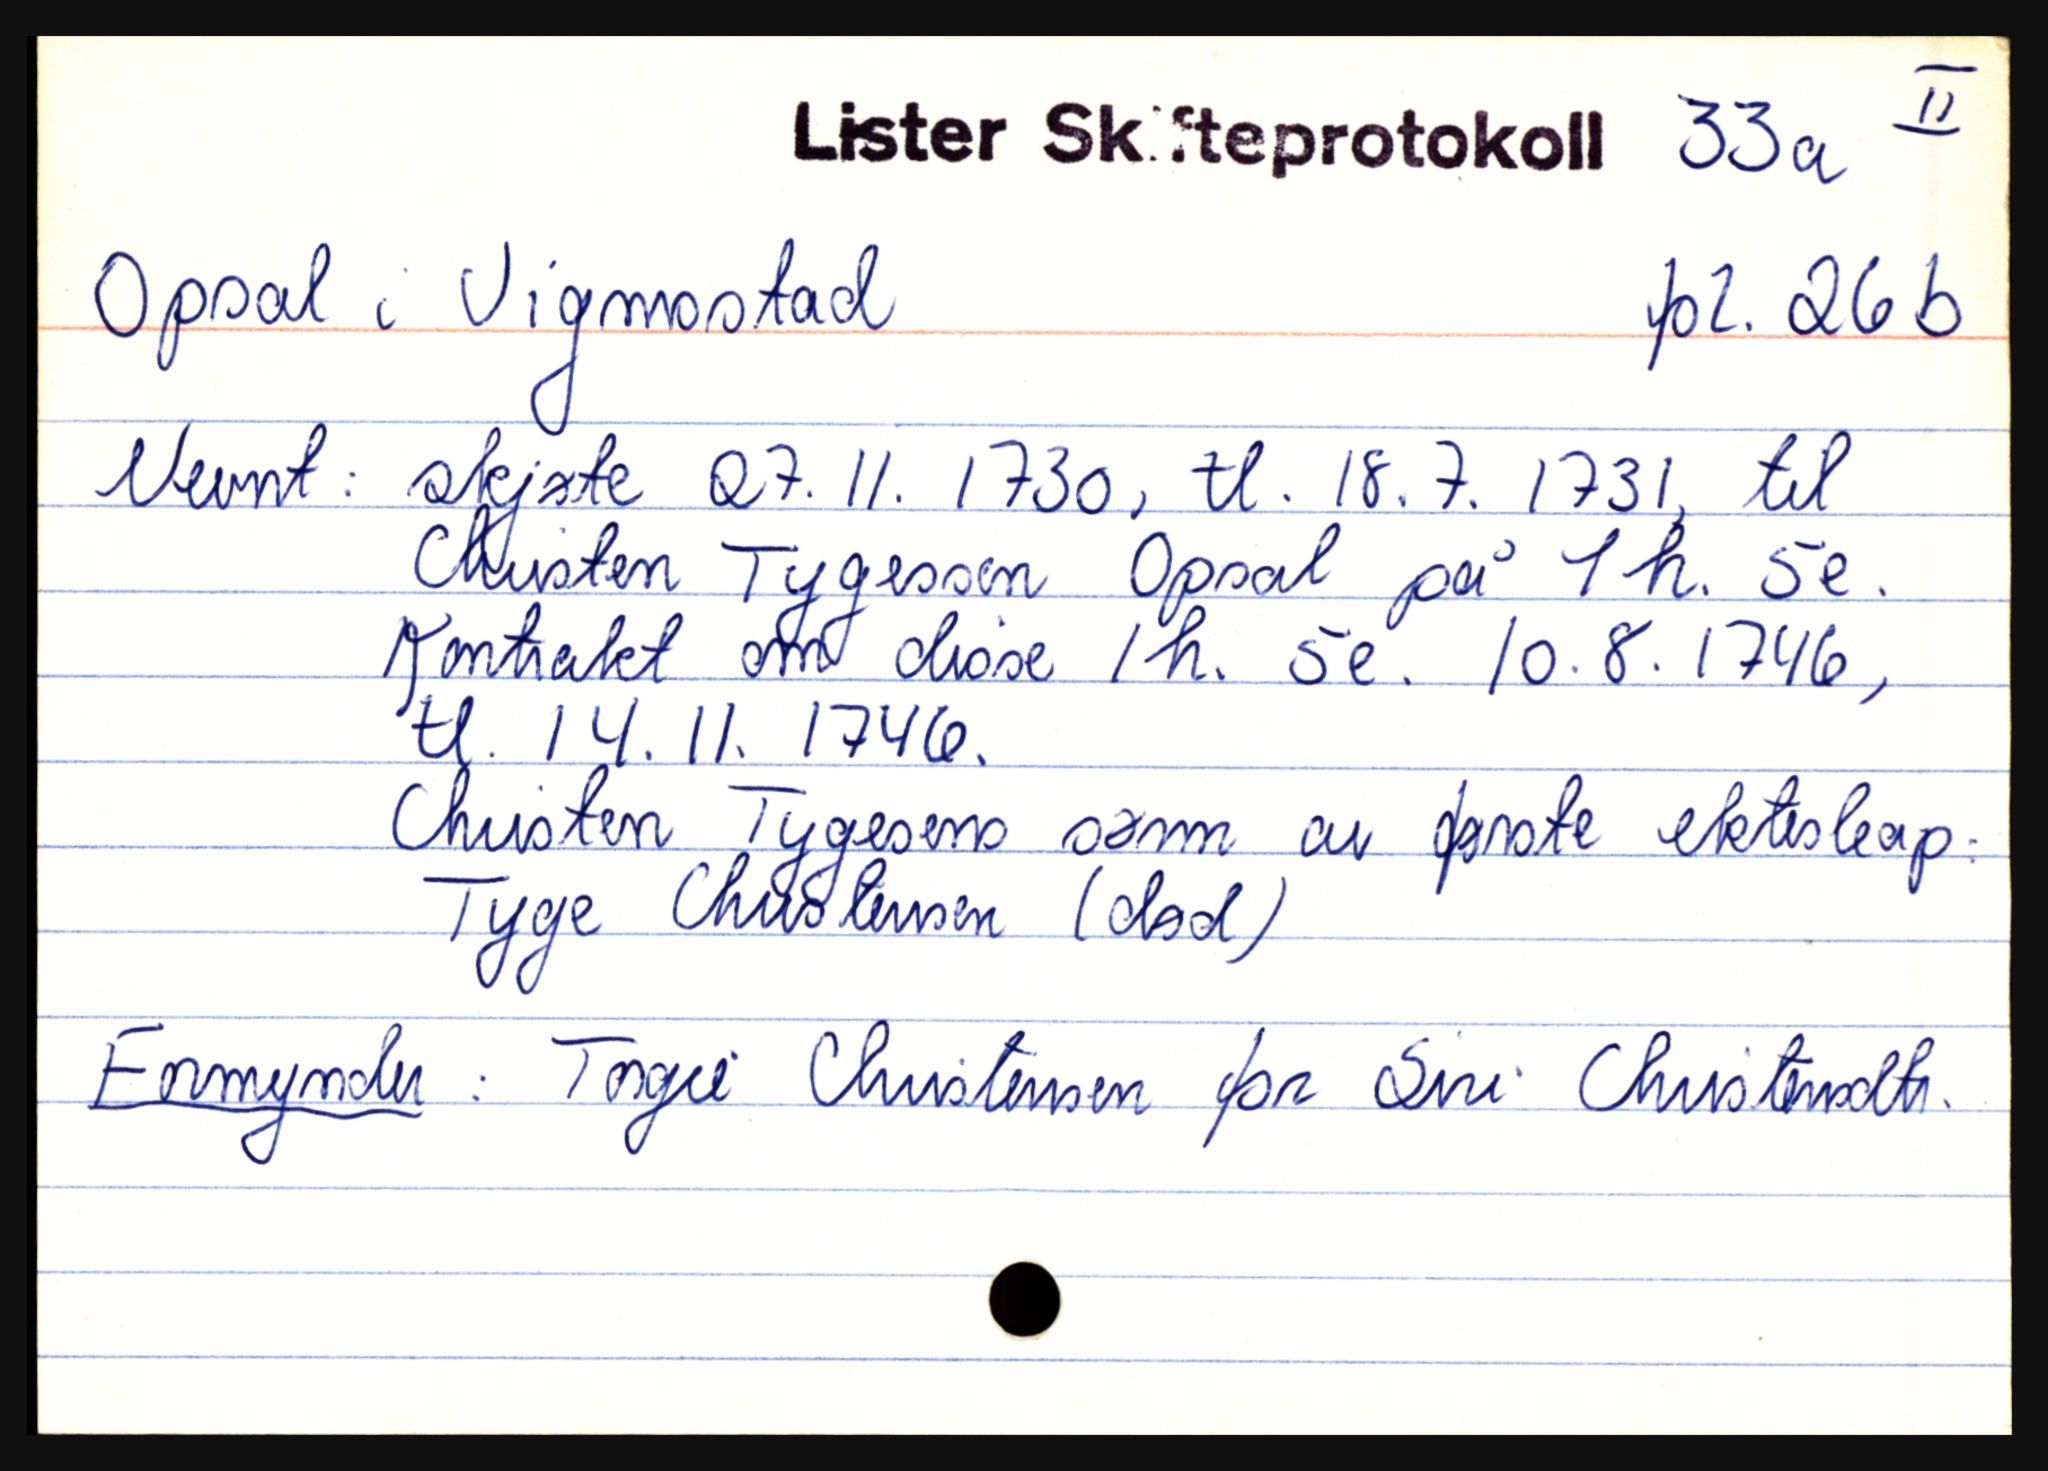 Lister Skifteprotokoll 33a II
Opsal i Vigmostad fol. 26 b
Nevnt: skjøte 27.11.1730, tl. 18.7.1731, til
Christen Tygessen Opsal på 1 h. 5 e.
Kontrakt om disse 1 h. 5 e. 10.8.1746,
tl. 14.11.1746.
Christen Tygesens sønn av første ekteskap:
Tyge Christensen (død)
Formynder: Torgie Christensen for Siri Christensdtr.